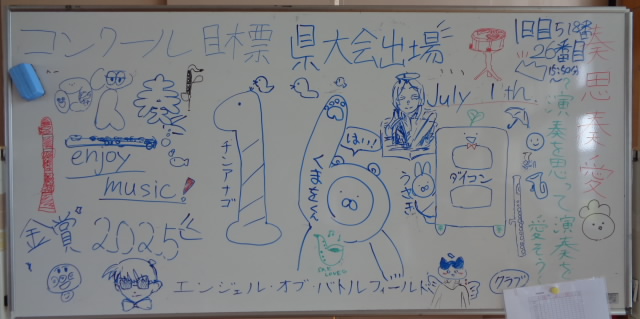 コンクール目標 県大会出場
1日目51番
26番目
15:50分
奏思奏愛
〜演奏を思って演奏を愛そう〜
奏
July 1th.
はい!
enjoy
music!
チンアナゴ
くませんくん
うさぎ
ダイコン
金賞 2025
エンジェル・オブ・バトルフィールド
クラブ